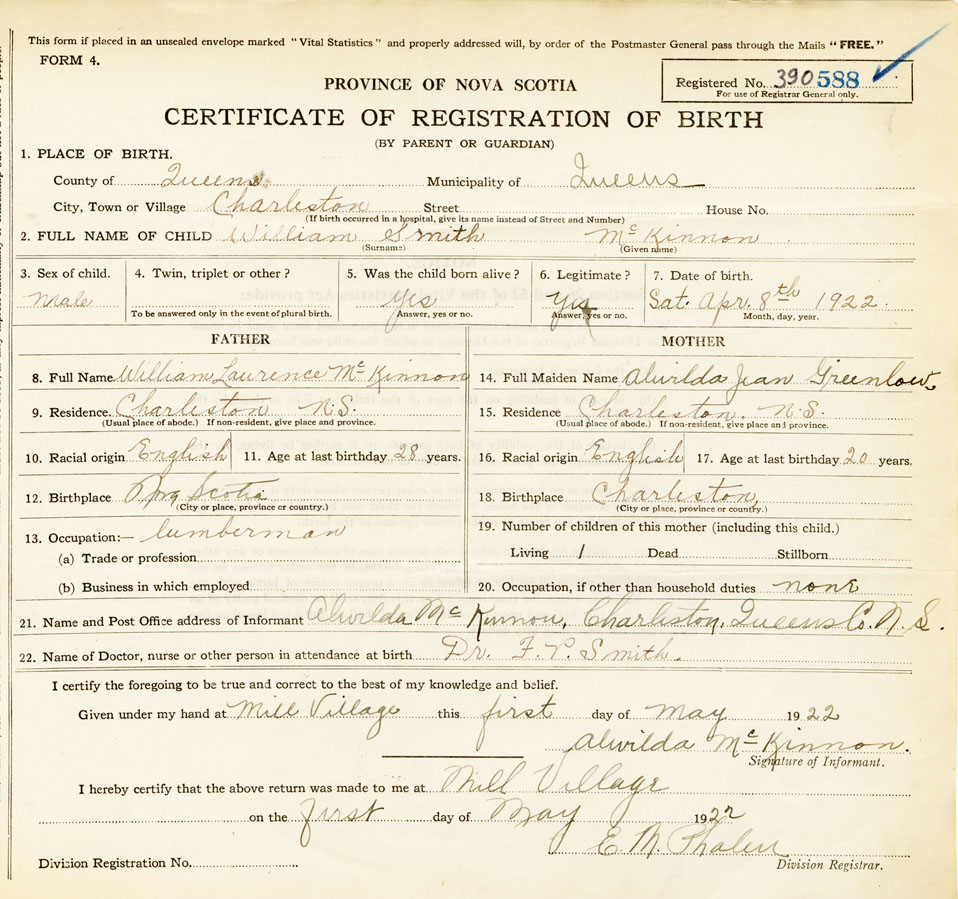 This form if placed in an unsealed envelope marked "Vital Statistics" and properly addressed will, by order of the Postmaster General pass through the Mails "FREE."
FORM 4.
PROVINCE OF NOVA SCOTIA
Registered No. 390588
For use of Registrar General only.
CERTIFICATE OF REGISTRATION OF BIRTH
(BY PARENT OR GUARDIAN)
1. PLACE OF BIRTH.
County of Queens Municipality of Queens
City, Town or Village Charleston Street House No.
(If birth occurred in a hospital, give its name instead of Street and Number)
2. FULL NAME OF CHILD William Smith McKinnon
(Surname) (Given name)
3. Sex of child. 4. Twin, triplet or other? 5. Was the child born alive? 6. Legitimate? 7. Date of birth.
Male Yes Yes Sat. Apr. 8th 1922.
To be answered only in the event of plural birth. Answer, yes or no. Answer, yes or no. Month, day, year.
FATHER MOTHER
8. Full Name William Laurence McKinnon 14. Full Maiden Name Alwilda Jean Greenlow
9. Residence. Charleston N.S. 15. Residence Charleston, N.S.
(Usual place of abode.) If non-resident, give place and province. (Usual place of abode.) If non-resident, give place and province.
10. Racial origin English 11. Age at last birthday 28 years. 16. Racial origin English 17. Age at last birthday 20 years.
12. Birthplace Nova Scotia 18. Birthplace Charleston,
(City or place, province or country.) (City or place, province or country.)
13. Occupation:— lumberman 19. Number of children of this mother (including this child.)
(a) Trade or profession Living 1 Dead Stillborn
(b) Business in which employed 20. Occupation, if other than household duties none
21. Name and Post Office address of Informant Alwilda McKinnon, Charleston, Queens Co. N.S.
22. Name of Doctor, nurse or other person in attendance at birth Dr. F. P. Smith.
I certify the foregoing to be true and correct to the best of my knowledge and belief.
Given under my hand at Mill Village this first day of May 1922
Alwilda McKinnon.
Signature of Informant.
I hereby certify that the above return was made to me at Mill Village
on the first day of May 1922
E. M. Phalen
Division Registration No. Division Registrar.